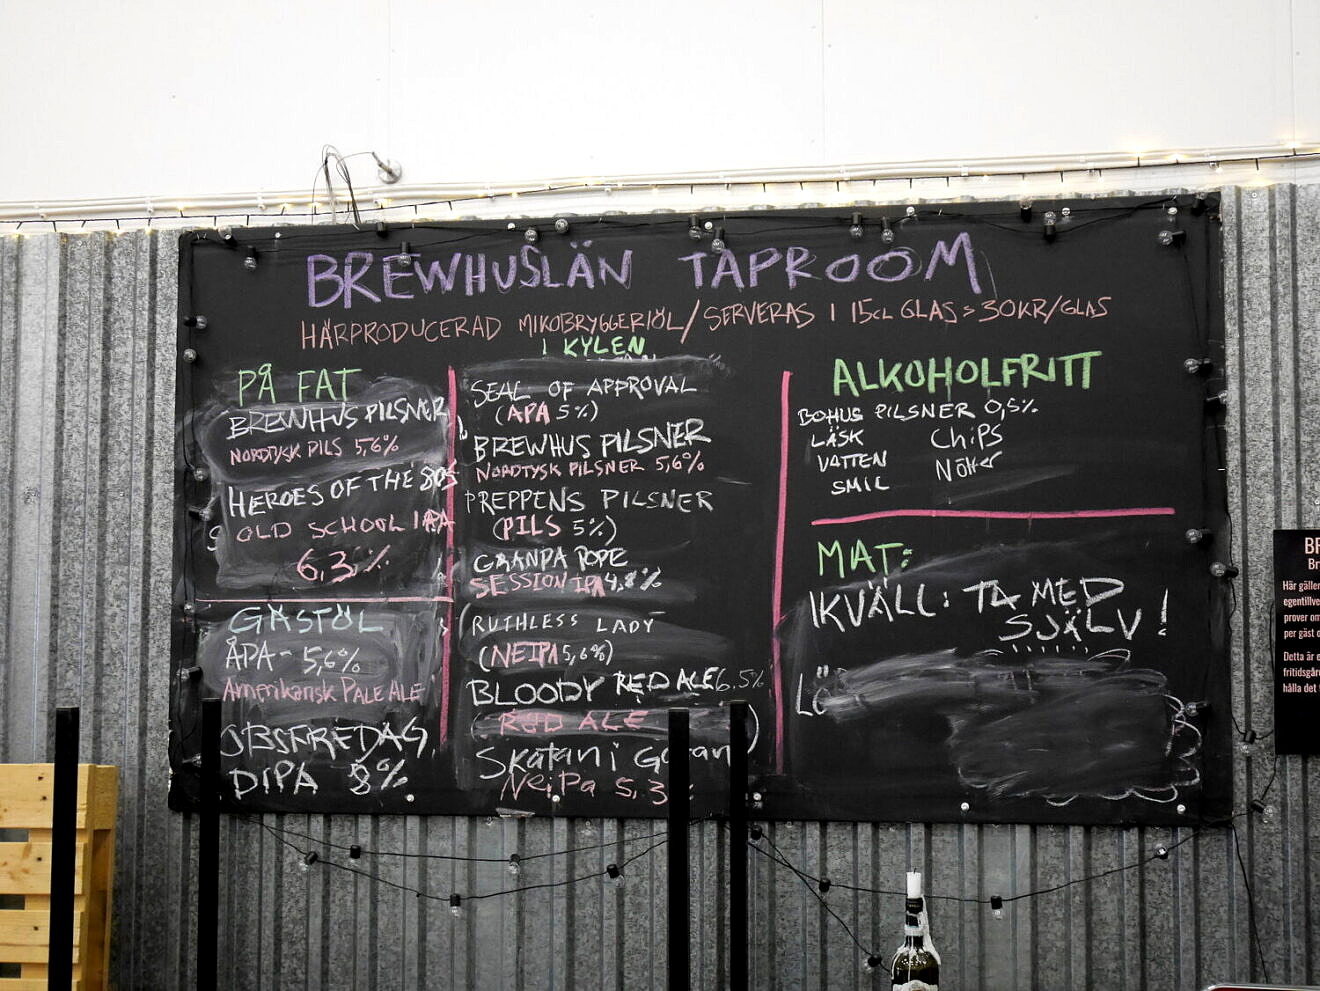 BREWHUSLÄN TAPROOM
HÄRPRODUCERAD MIKOBRYGGERIÖL/SERVERAS I 15CL GLAS > 30KR/GLAS
PÅ FAT
BREWHUS PILSNER
NORDTYSK PILS 5,6%
HEROES OF THE 80S
OLD SCHOOL IPA
6,3%
GÄSTÖL
ÅPA - 5,6%
Amerikansk PALE ALE
DIPA 8%
I KYLEN
SEAL OF APPROVAL
(APA 5%)
BREWHUS PILSNER
NORDTYSK PILSNER 5,6%
PREPPENS PILSNER
(PILS 5%)
GRANPA POPE
SESSION IPA 4,8%
RUTHLESS LADY
(NEIPA 5,6%)
BLOODY RED ALE 6.5%
(RED ALE)
Skatan i Granen
NeiPa 5,3
ALKOHOLFRITT
BOHUS PILSNER 0,5%
LÄSK ChiPS
VATTEN Nötter
SMIL
MAT:
IKVÄLL: TA MED
SJÄLV!
LÖ
BR
Br
Här gäller
egentillve
prover om
per gäst o
Detta är e
fritidsgår
hålla det